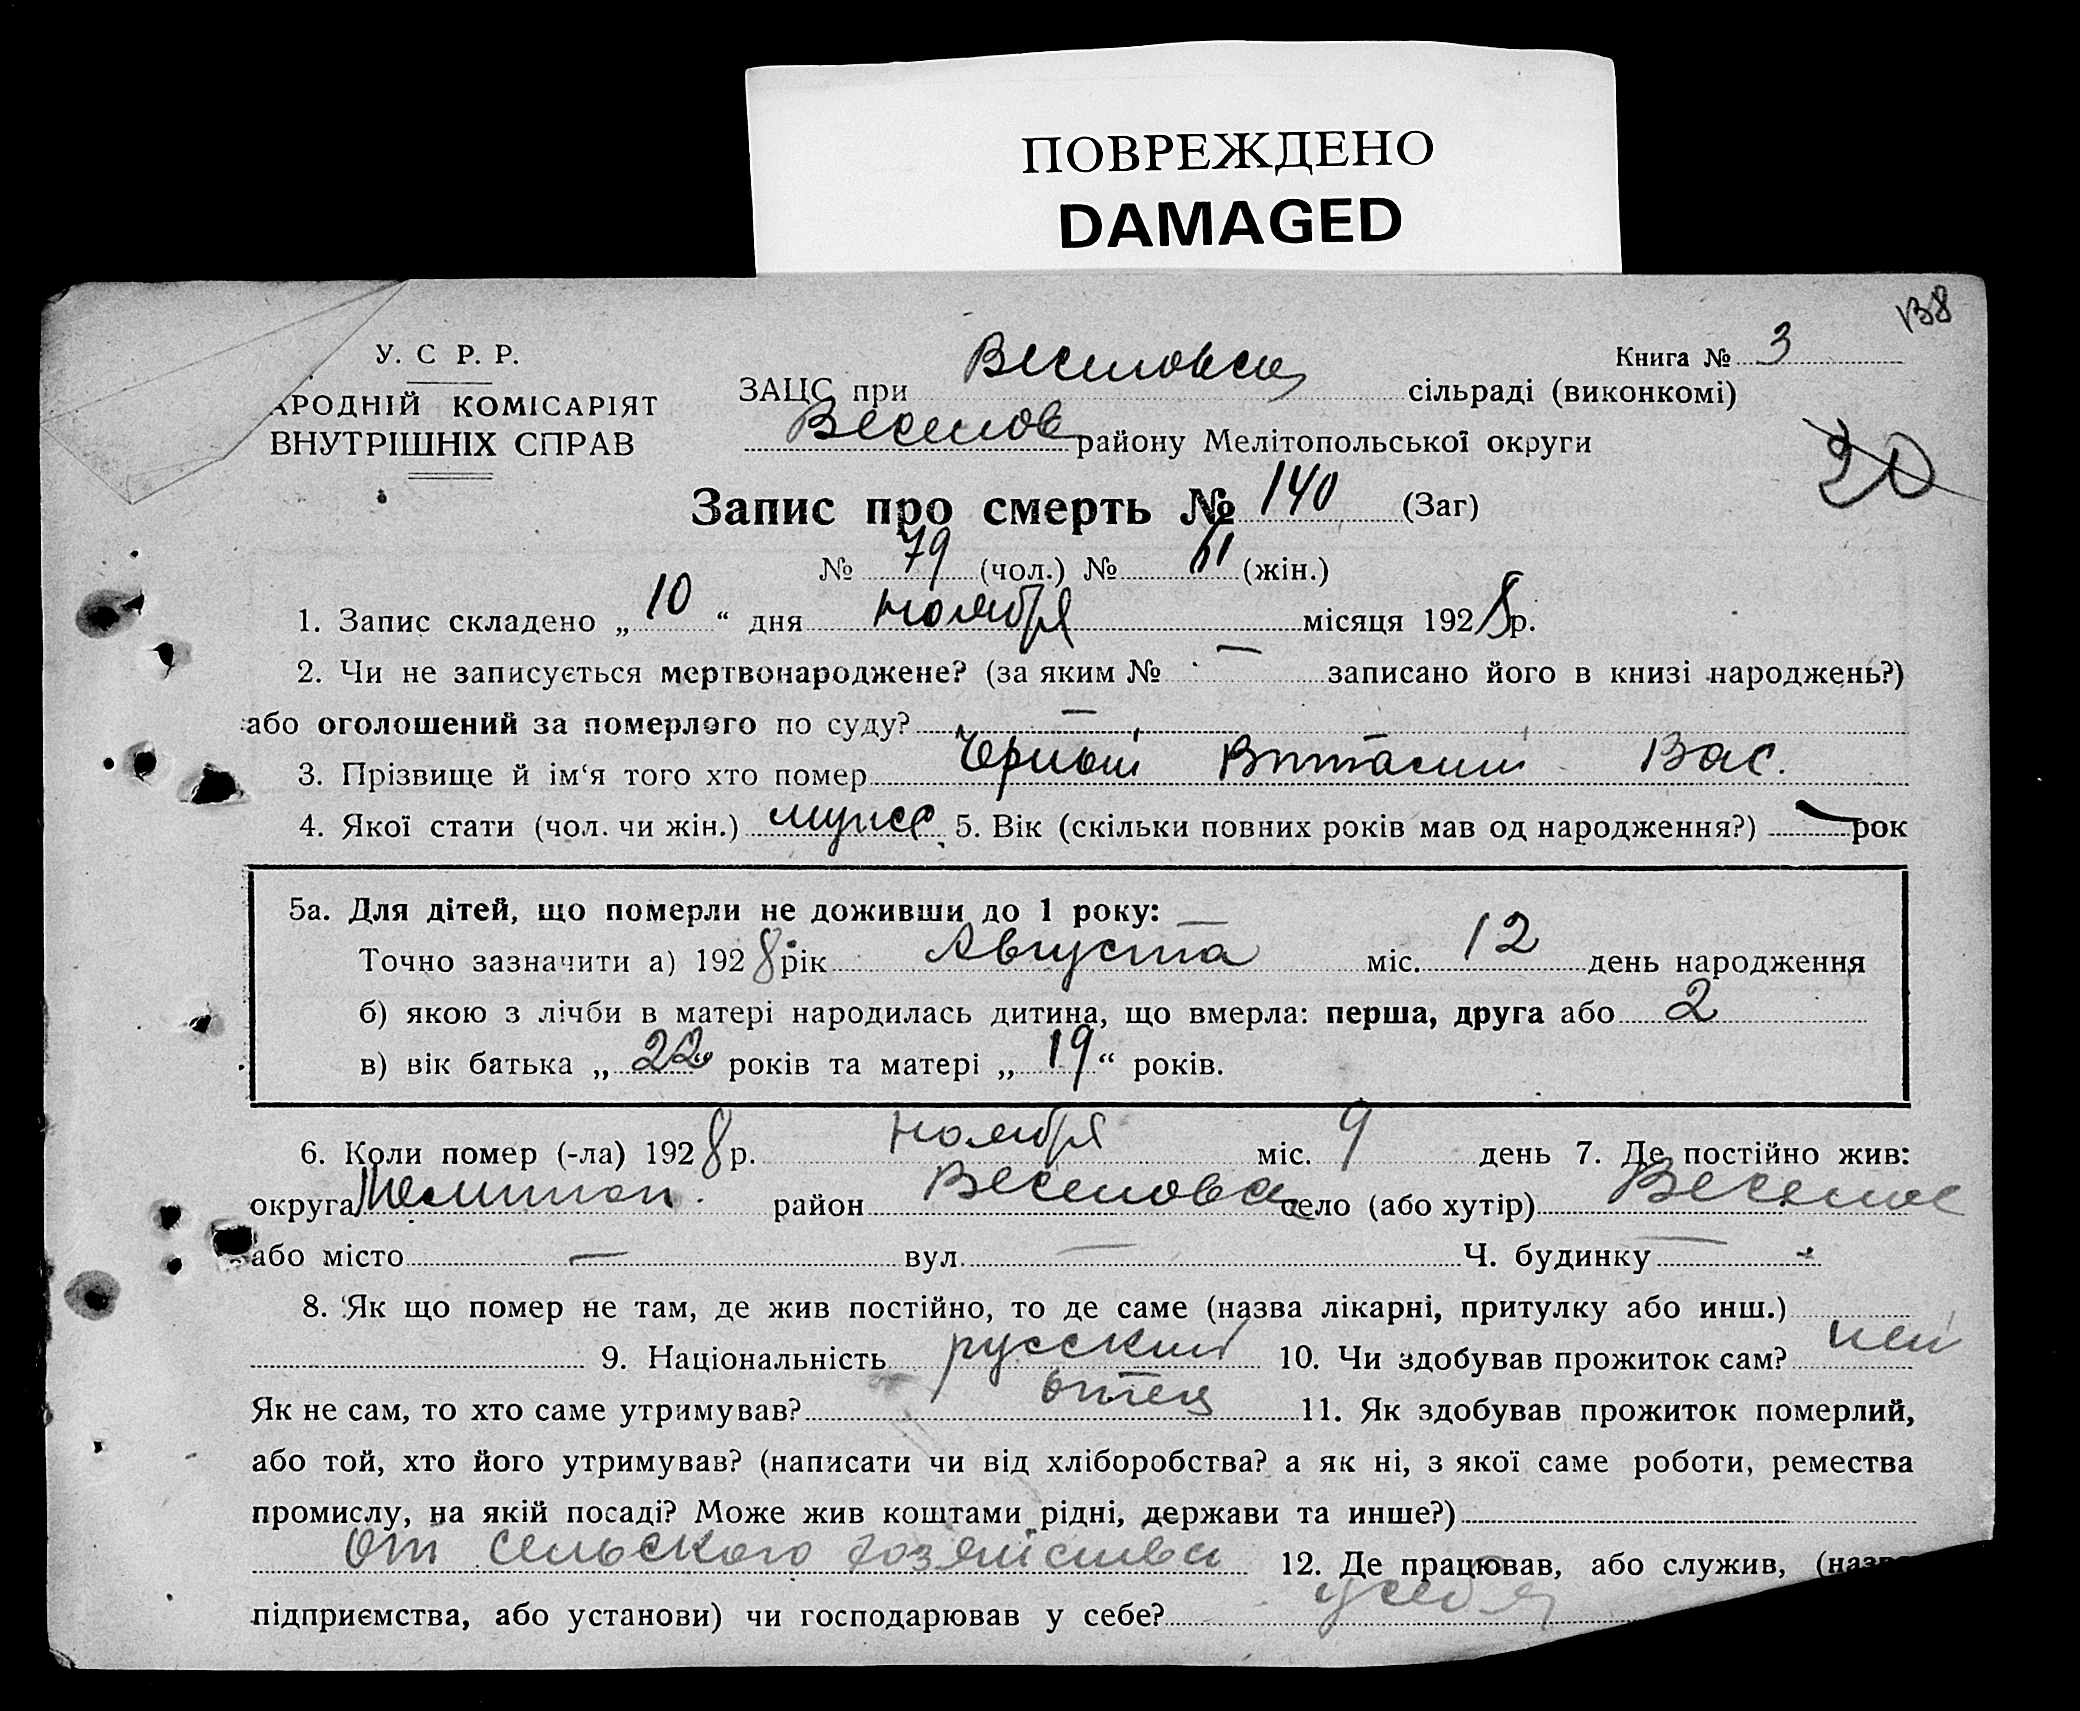 ПОВРЕЖДЕНО
DAMAGED
138
У. С Р. Р.
АРОДНІЙ КОМІСАРІЯТ
ВНУТРІШНІХ СПРАВ
Книга № 3
ЗАЦС при Веселовск сільраді (виконкомі)
Веселов району Мелітопольської округи
20
Запис про смерть № 140 (Заг)
№ 79 (чол.) № (жін.)
1. Запис складено „ 10 “ дня ноября місяця 1928 р.
2. Чи не записується мертвонароджене? (за яким № — записано його в книзі народжень?)
або оголошений за померлого по суду? —
3. Прізвище й ім‘я того хто помер Черный Виталий Вас.
4. Якої стати (чол. чи жін.) мужск 5. Вік (скільки повних років мав од народження?) — рок
5а. Для дітей, що померли не доживши до 1 року: —
Точно зазначити а) 1928 рік Августа міс. 12 день народження
б) якою з лічби в матері народилась дитина, що вмерла: перша, друга або 2
в) вік батька „ 22 “ років та матері „ 19 “ років.
6. Коли помер (-ла) 1928 р. ноября міс. 9 день 7. Де постійно жив:
округа Мелитоп. район Веселовск село (або хутір) Веселое
або місто — вул. — Ч. будинку —
8. Як що помер не там, де жив постійно, то де саме (назва лікарні, притулку або инш.)
9. Національність русский 10. Чи здобував прожиток сам? нет
Як не сам, то хто саме утримував? отец 11. Як здобував прожиток померлий,
або той, хто його утримував? (написати чи від хліборобства? а як ні, з якої саме роботи, ремества
промислу, на якій посаді? Може жив коштами рідні, держави та инше?)
От сельского хозяйства 12. Де працював, або служив, (назва
підприємства, або установи) чи господарював у себе? у себя